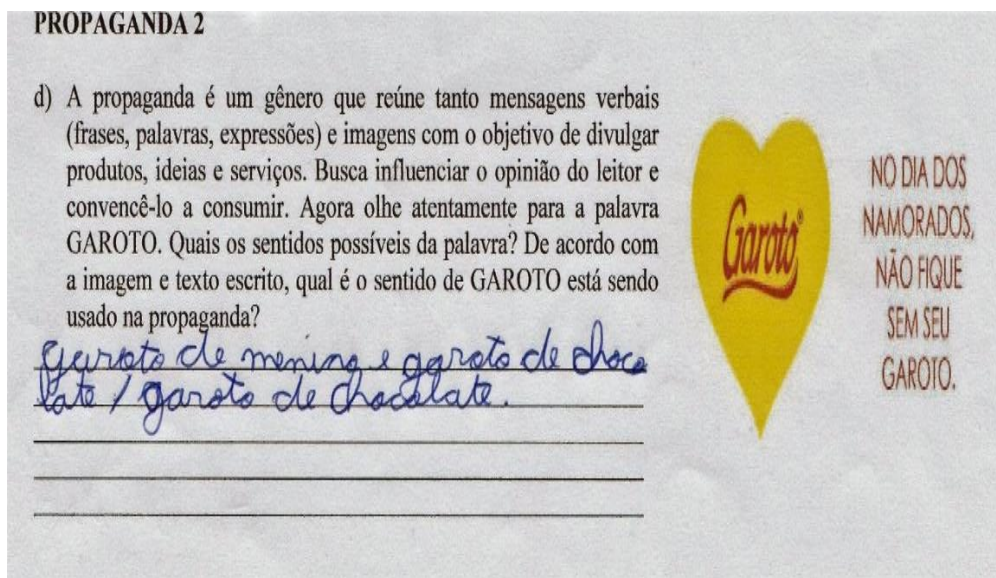 PROPAGANDA 2
d) A propaganda é um gênero que reúne tanto mensagens verbais
(frases, palavras, expressões) e imagens com o objetivo de divulgar
produtos, ideias e serviços. Busca influenciar o opinião do leitor e
convencê-lo a consumir. Agora olhe atentamente para a palavra
GAROTO. Quais os sentidos possíveis da palavra? De acordo com
a imagem e texto escrito, qual é o sentido de GAROTO está sendo
usado na propaganda?
garoto de menino e garoto de choco
late / garoto de chocolate.
Garoto®
NO DIA DOS
NAMORADOS,
NÃO FIQUE
SEM SEU
GAROTO.